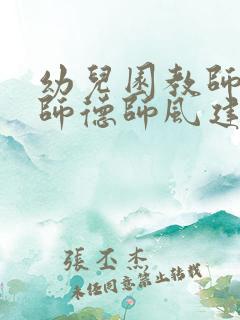 幼兒園教師
師德師風建
張丕杰
未経同意禁止转载